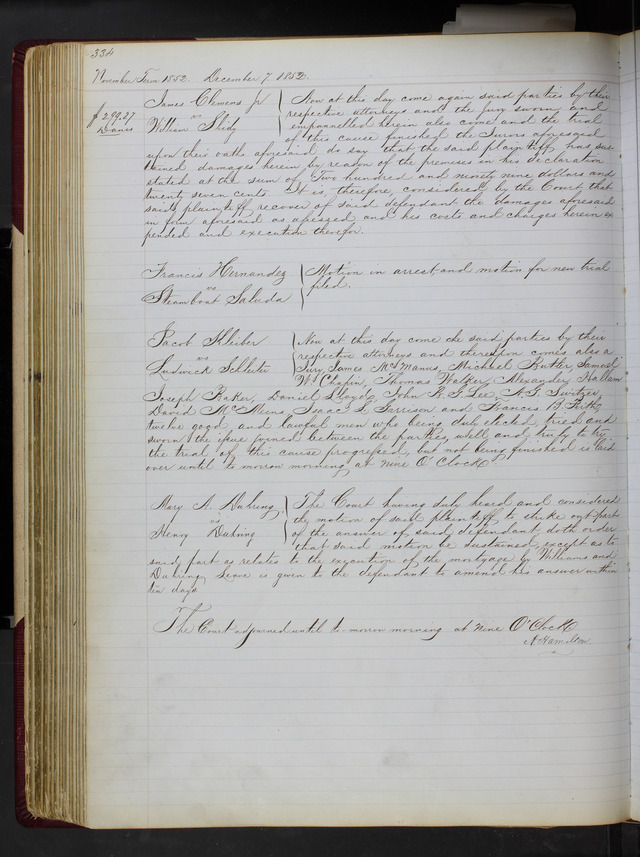 334
November Term 1852. December 7. 1852.
James Clemens Jr Now at this day come again said parties by their
$299.27 vs respective attorneys and the jury sworn and
Davis William empannelled herein also come and the trial
of this cause finished the Jurors aforesaid
upon their oaths aforesaid do say that the said plaintiff has sus
tained damages herein by reason of the premises in his declaration
stated at the sum of Two hundred and ninety nine dollars and
twenty seven cents. It is, therefore, considered by the Court that
said plaintiff recover of said defendant the damages aforesaid
in form aforesaid as assessed and his costs and charges herein ex
pended and execution therefor.
Francis Hernandez Motion in arrest, and motion for new trial
vs filed.
Steamboat Saluda
Jacob Kleiber Now at this day come the said parties by their
vs respective attorneys and thereupon comes also a
Ludwick Jury, James McManus, Michael Butler, Samuel
W. Chapin, Thomas Walker, Alexander Hallam
Joseph Baker, Daniel Lloyd, John R. F. Lee, A. F. Switzer,
David McMeins Isaac L. Garrison and Francis B.
twelve good and lawful men who being duly elected, tried and
sworn the issue joined between the parties, well and truly to try
the trial of this cause progressed, but not being finished is laid
over until to morrow morning at nine O'Clock
Mary A. Duhring The Court having duly heard and considered
vs the motion of said plaintiff to strike out part
Henry Duhring of the answer of said defendant, doth order
that said motion be sustained except as to
said part as relates to the execution of the mortgage by Williams and
Duhring Leave is given to the defendant to amend his answer within
ten days
The Court adjourned until to-morrow morning at nine O'Clock
A. Hamilton